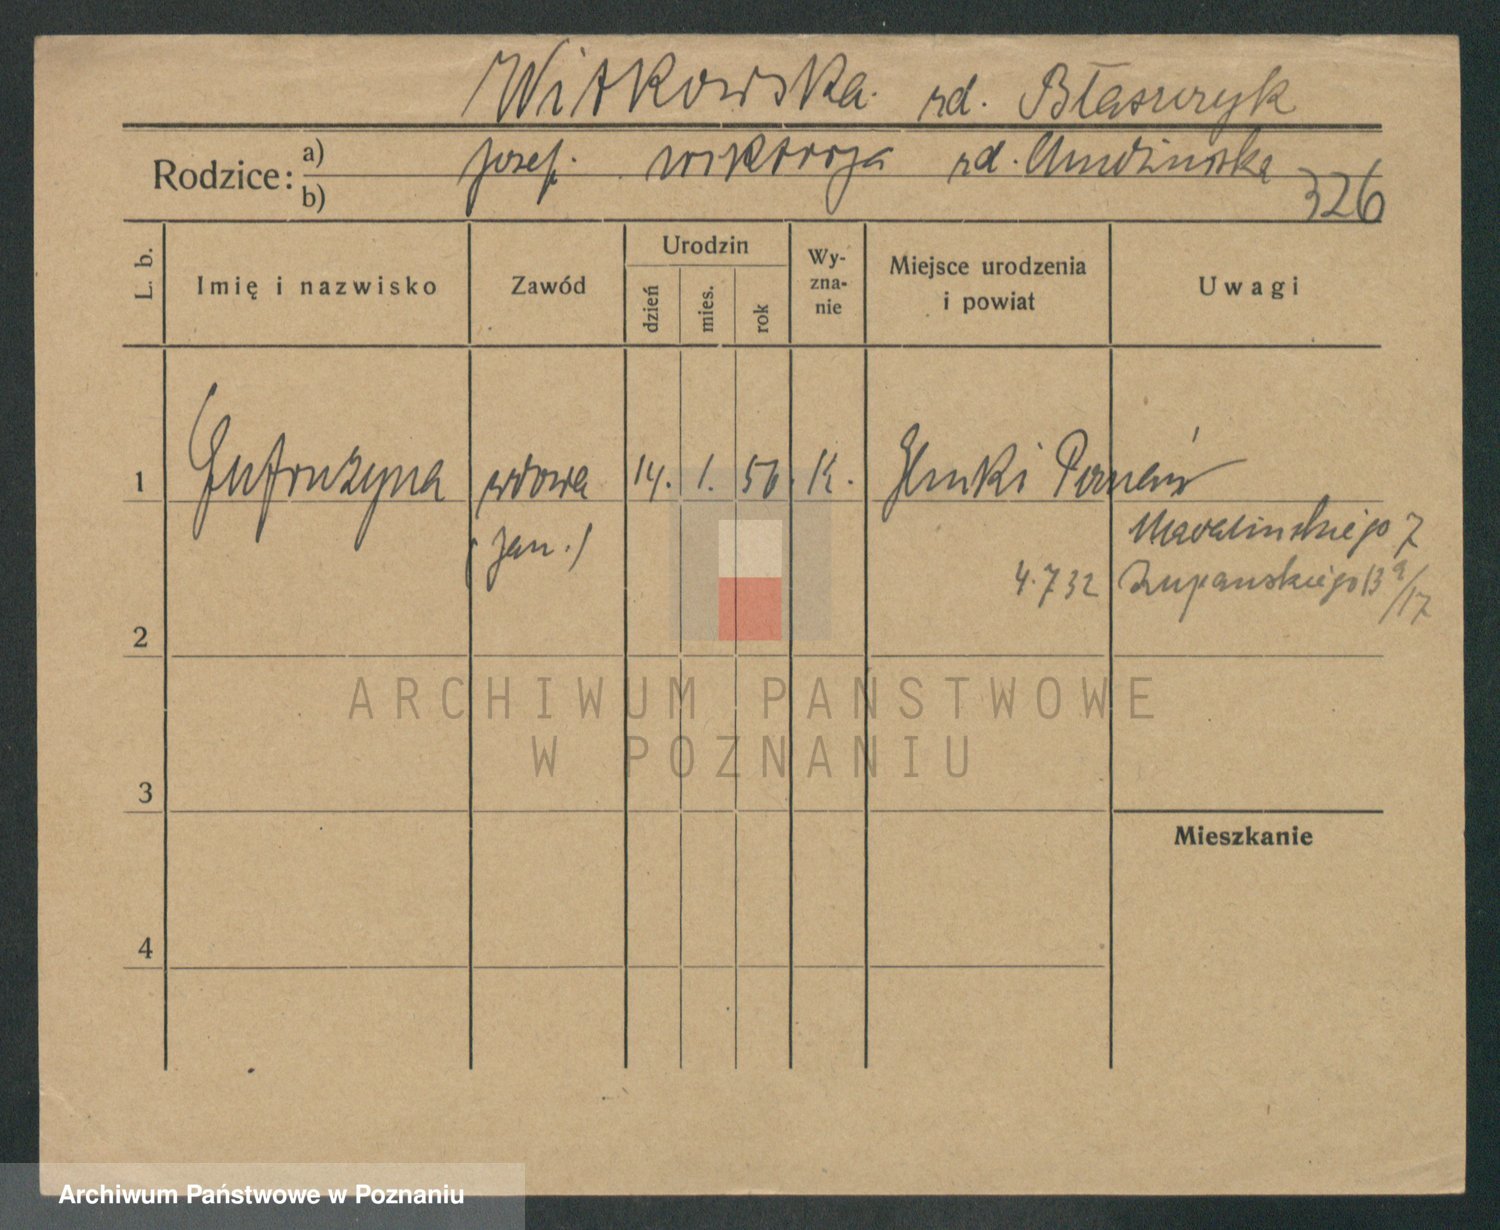 Witkowska rd. Błaszczyk
Rodzice: a) Józef. Wiktorja rd.
b)
326
L. b.
Imię i nazwisko
Zawód
Urodzin
dzień
mies.
rok
Wy-
zna-
nie
Miejsce urodzenia
i powiat
Uwagi
1 wdowa 14. 1. 56. K. Poznań
(Jan.)
Mavelinskiego 7
4.7 32 Zupanskiego 13a/17
2
3
Mieszkanie
4
ARCHIWUM PAŃSTWOWE
W POZNANIU
Archiwum Państwowe w Poznaniu